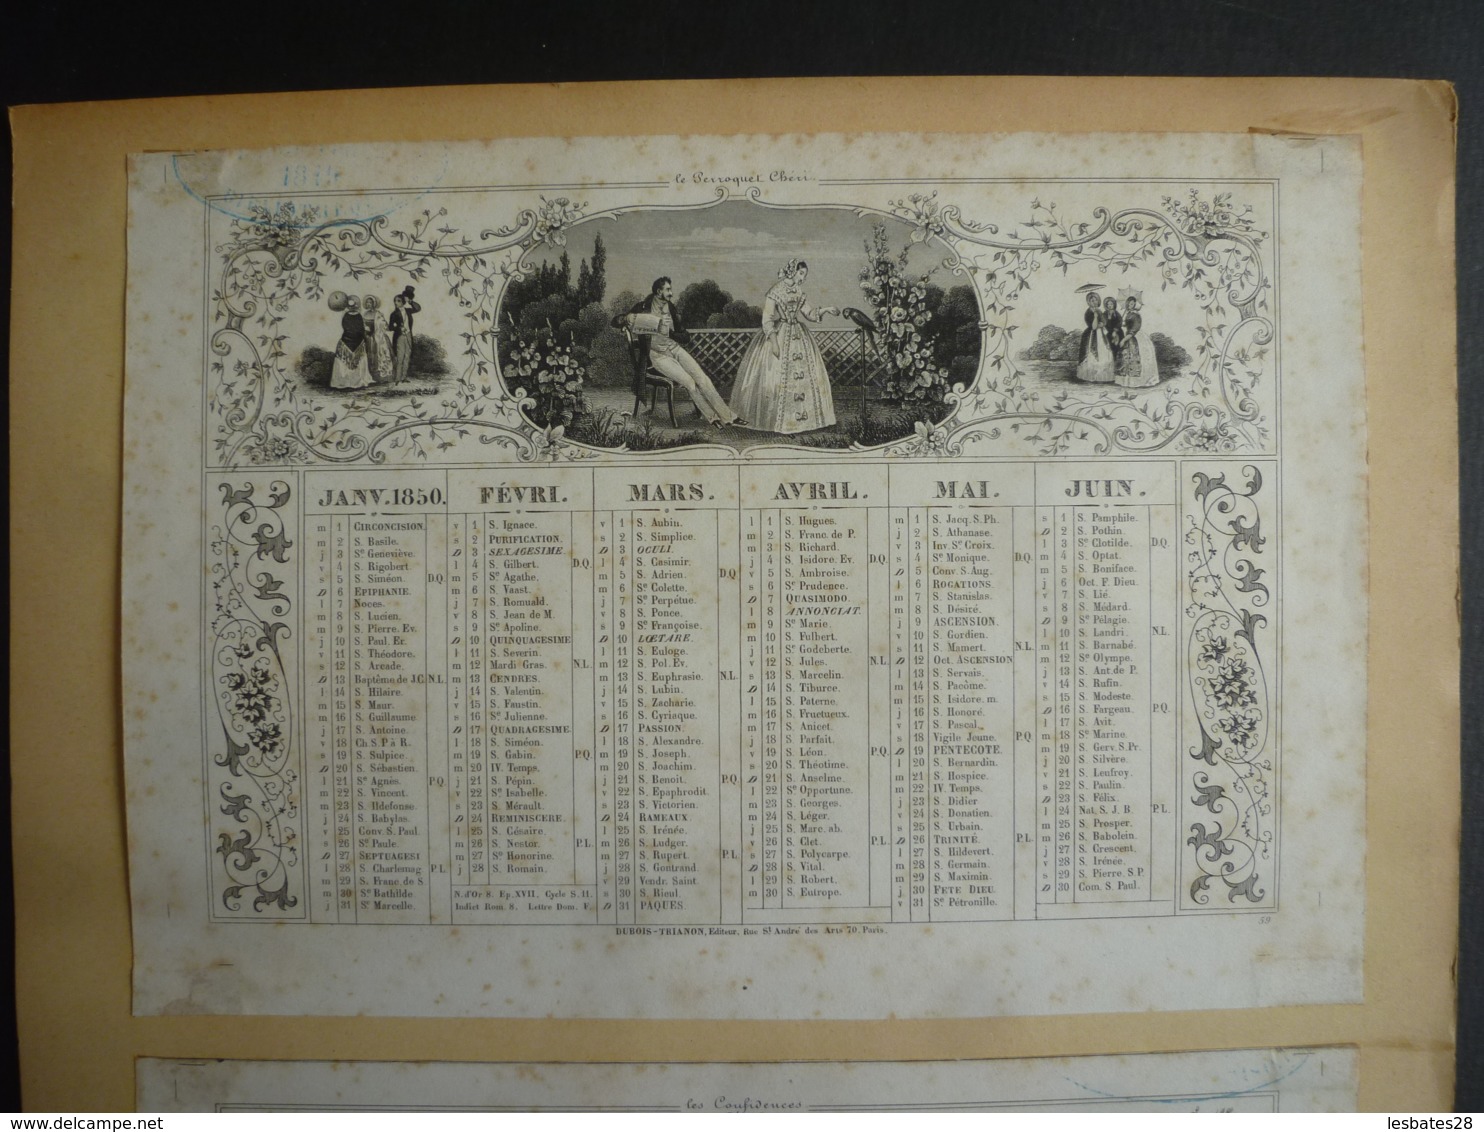 1849
le Perroquet Chéri.
JANV. 1850.
m 1 CIRCONCISION.
m 2 S. Basile.
j 3 Ste Geneviève.
v 4 S. Rigobert
s 5 S. Siméon. D.Q.
D 6 EPIPHANIE.
l 7 Noces.
m 8 S. Lucien.
m 9 S. Pierre. Ev.
j 10 S. Paul. Er.
v 11 S. Théodore.
s 12 S. Arcade.
D 13 Baptême de J.C. N.L.
l 14 S. Hilaire.
m 15 S. Maur.
m 16 S. Guillaume
j 17 S. Antoine
v 18 Ch. S. P. à R.
s 19 S. Sulpice.
D 20 S. Sébastien.
l 21 Ste Agnès. P.Q.
m 22 S. Vincent.
m 23 S. Ildefonse.
j 24 S. Babylas.
v 25 Conv. S. Paul.
s 26 Ste Paule.
D 27 SEPTUAGESI
l 28 S. Charlemag P.L.
m 29 S. Franc. de S
m 30 Ste Bathilde
j 31 Ste Marcelle.
FÉVRI.
v 1 S. Ignace.
s 2 PURIFICATION.
D 3 SEXAGESIME.
l 4 S. Gilbert. D.Q.
m 5 Ste Agathe.
m 6 S. Vaast.
j 7 S. Romuald.
v 8 S. Jean de M.
s 9 Ste Apoline.
D 10 QUINQUAGESIME
l 11 S. Severin.
m 12 Mardi Gras. N.L.
m 13 CENDRES.
j 14 S. Valentin.
v 15 S. Faustin.
s 16 Ste Julienne.
D 17 QUADRAGESIME.
l 18 S. Siméon.
m 19 S. Gabin. P.Q.
m 20 IV. Temps.
j 21 S. Pépin.
v 22 Ste Isabelle.
s 23 S. Mérault.
D 24 REMINISCERE.
l 25 S. Césaire.
m 26 S. Nestor. P.L.
m 27 Ste Honorine.
j 28 S. Romain.
N. d'Or 8. Ep. XVII. Cycle S. 11.
Indict Rom. 8. Lettre Dom. F.
MARS.
v 1 S. Aubin.
s 2 S. Simplice.
D 3 OCULI.
l 4 S. Casimir.
m 5 S. Adrien. D.Q
m 6 Ste Colette.
j 7 Ste Perpétue.
v 8 S. Ponce.
s 9 Ste Françoise.
D 10 LŒTARE.
l 11 S. Euloge.
m 12 S. Pol. Ev.
m 13 S. Euphrasie. N.L.
j 14 S. Lubin.
v 15 S. Zacharie.
s 16 S. Cyriaque.
D 17 PASSION.
l 18 S. Alexandre.
m 19 S. Joseph.
m 20 S. Joachim.
j 21 S. Benoit. P.Q.
v 22 S. Epaphrodit.
s 23 S. Victorien.
D 24 RAMEAUX.
l 25 S. Irénée.
m 26 S. Ludger.
m 27 S. Rupert. P.L
j 28 S. Gontrand.
v 29 Vendr. Saint
s 30 S. Rieul.
D 31 PAQUES.
AVRIL.
l 1 S. Hugues.
m 2 S. Franc. de P.
m 3 S. Richard.
j 4 S. Isidore. Ev. D.Q.
v 5 S. Ambroise.
s 6 Ste Prudence.
D 7 QUASIMODO.
l 8 ANNONCIAT.
m 9 Ste Marie.
m 10 S. Fulbert.
j 11 Ste Godeberte.
v 12 S. Jules. N.L.
s 13 S. Marcelin.
D 14 S. Tiburce.
l 15 S. Paterne.
m 16 S. Fructueux.
m 17 S. Anicet.
j 18 S. Parfait.
v 19 S. Léon. P.Q.
s 20 S. Théotime.
D 21 S. Anselme.
l 22 Ste Opportune.
m 23 S. Georges.
m 24 S. Léger.
j 25 S. Marc. ab.
v 26 S. Clet. P.L.
s 27 S. Polycarpe.
D 28 S. Vital.
l 29 S. Robert.
m 30 S. Eutrope.
MAI.
m 1 S. Jacq. S. Ph.
j 2 S. Athanase.
v 3 Inv. Ste Croix.
s 4 Ste Monique. D.Q.
D 5 Conv. S. Aug.
l 6 ROGATIONS.
m 7 S. Stanislas.
m 8 S. Désiré.
j 9 ASCENSION.
v 10 S. Gordien.
s 11 S. Mamert. N.L.
D 12 Oct. ASCENSION
l 13 S. Servais.
m 14 S. Pacôme.
m 15 S. Isidore. m.
j 16 S. Honoré.
v 17 S. Pascal.
s 18 Vigile Jeune. P.Q.
D 19 PENTECOTE.
l 20 S. Bernardin.
m 21 S. Hospice.
m 22 IV. Temps.
j 23 S. Didier
v 24 S. Donatien.
s 25 S. Urbain.
D 26 TRINITÉ P.L.
l 27 S. Hildevert.
m 28 S. Germain.
m 29 S. Maximin.
j 30 FETE DIEU.
v 31 Ste Pétronille.
JUIN.
s 1 S. Pamphile.
D 2 S. Pothin.
l 3 Ste Clotilde. D.Q.
m 4 S. Optat.
m 5 S. Boniface.
j 6 Oct. F. Dieu.
v 7 S. Lié.
s 8 S. Médard.
D 9 Ste Pélagie.
l 10 S. Landri. N.L.
m 11 S. Barnabé.
m 12 Ste Olympe.
j 13 S. Ant. de P.
v 14 S. Rufin.
s 15 S. Modeste.
D 16 S. Fargeau. P.Q.
l 17 S. Avit.
m 18 Ste Marine.
m 19 S. Gerv. S. Pr.
j 20 S. Silvère.
v 21 S. Leufroy.
s 22 S. Paulin.
D 23 S. Félix.
l 24 Nat. S. J. B. P.L.
m 25 S. Prosper.
m 26 S. Babolein.
j 27 S. Crescent.
v 28 S. Irénée.
s 29 S. Pierre. S. P.
D 30 Com. S. Paul.
59
DUBOIS-TRIANON, Editeur, Rue St André des Arts 70. Paris.
les Confidences
lesbates28